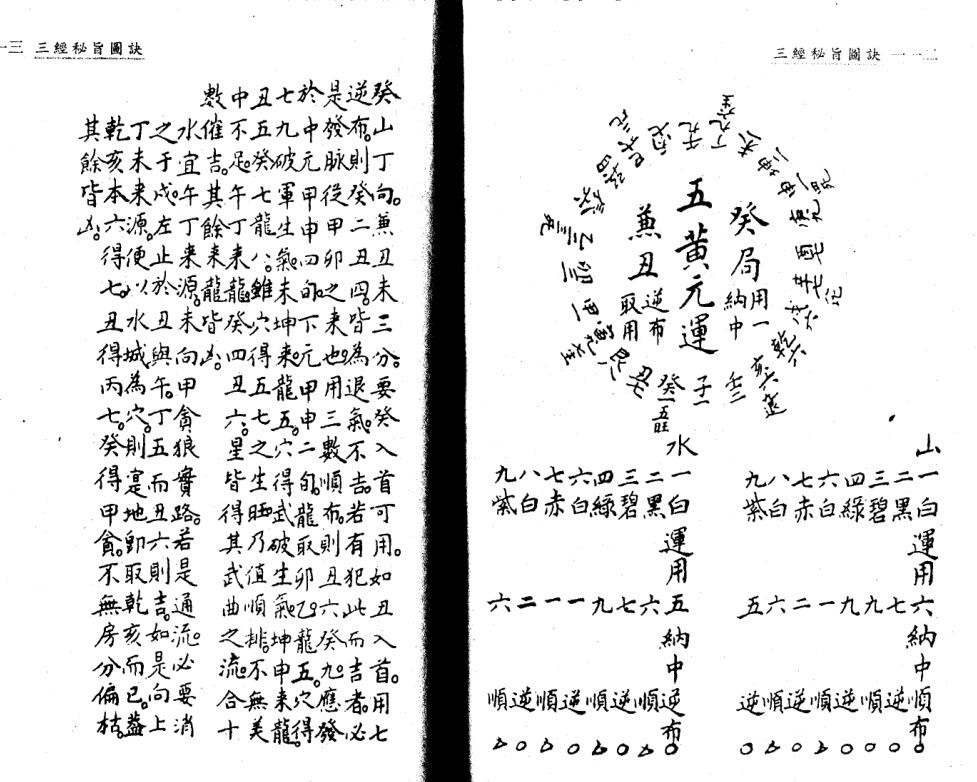 三經秘旨圖訣 一一二
癸局 用一納中
五黃元運
兼丑 逆布取用
山
一白運用六納中順布
二黑 七 逆
三碧 九 順
四綠 九 逆
六白 一 順
七赤 二 逆
八白 六 順
九紫 五 逆
水
一白運用五納中逆布
二黑 六 順
三碧 七 逆
四綠 九 順
六白 一 逆
七赤 一 順
八白 二 逆
九紫 六 順
三經秘旨圖訣 一一三
癸山丁向。兼丑未三分。要癸入首可用。如丑入首。用七
逆布。則癸二丑四。皆為退氣不吉。若有犯此而吉者。必
是發脉從甲卯之來也。用三數順布。則丑六癸九。應發
於中元甲申四的下元甲申二的龍取卯乙龍五穴得
七九破軍生氣。未坤來龍五穴得武破生氣。坤申來龍
丑五癸七龍八。雖穴得五七之生。晒乃值順挑不無美
中不足。午丁來龍癸四丑六。星皆得其武曲之流。合十
數催吉。其餘來龍皆凶。
水宜午丁來源。未向甲貪狼實路。若是通流。必要消
之于戌。左止於丑與午。丁五而丑六則吉。如是向上
丁未來源。便以水城為穴。則寔地即取乾亥而已。蓋
乾亥本六得七。丑得丙七。癸得甲貪。不無房分偏枯。
其餘皆凶。